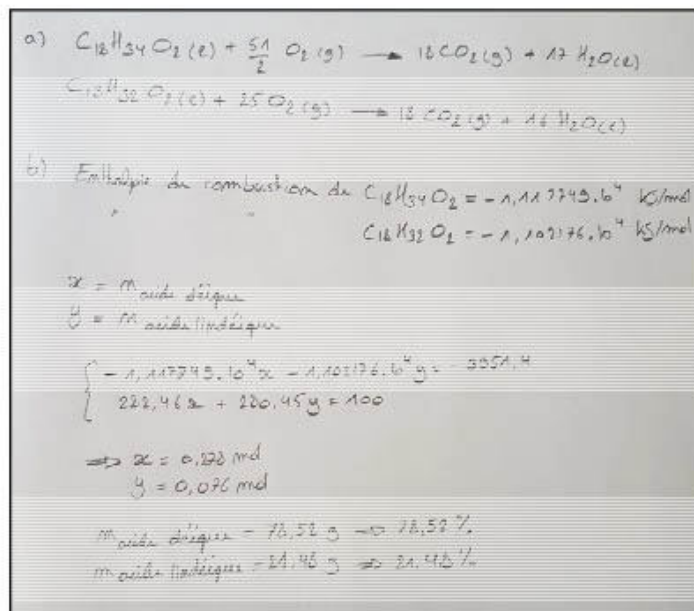 a) C₁₈H₃₄O₂(l) + 51/2 O₂(g) → 18CO₂(g) + 17 H₂O(l)
C₁₈H₃₂O₂(l) + 25 O₂(g) → 18 CO₂(g) + 16 H₂O(l)
b) Enthalpie de combustion de C₁₈H₃₄O₂ = -1,117749.10⁴ kJ/mol
" " C₁₈H₃₂O₂ = -1,102176.10⁴ kJ/mol
x = n acide oléique
y = n acide linoléique
{ -1,117749.10⁴x - 1,102176.10⁴y = -3951,4
282,46x + 280,45y = 100
⇒ x = 0,278 mol
y = 0,076 mol
m acide oléique = 78,52 g ⇒ 78,52 %
m acide linoléique = 21,48 g ⇒ 21,48 %